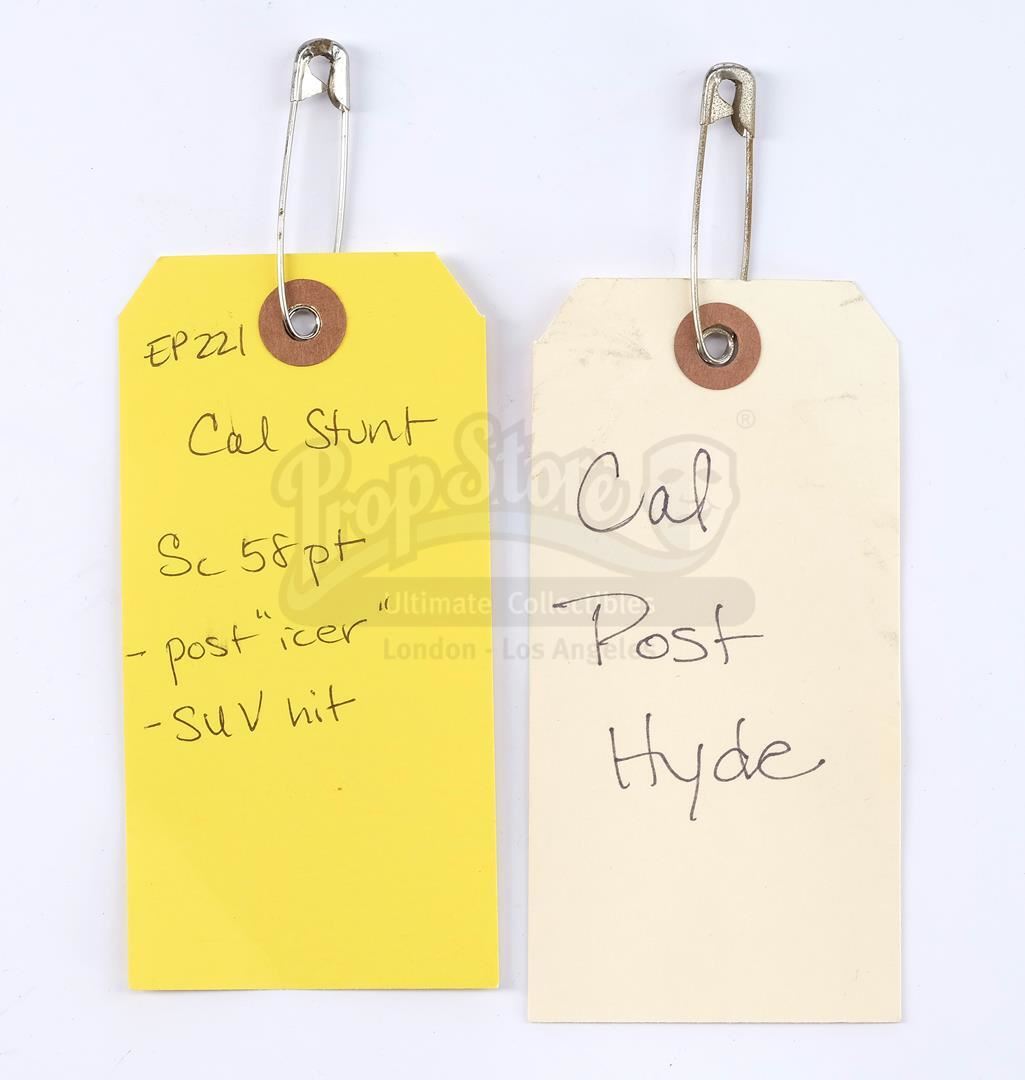 EP221
Cal Stunt
Sc 58pt
- post "icer"
- SUV hit
Cal
Post
Hyde
PropStore
®
Ultimate Collectibles
London - Los Angeles